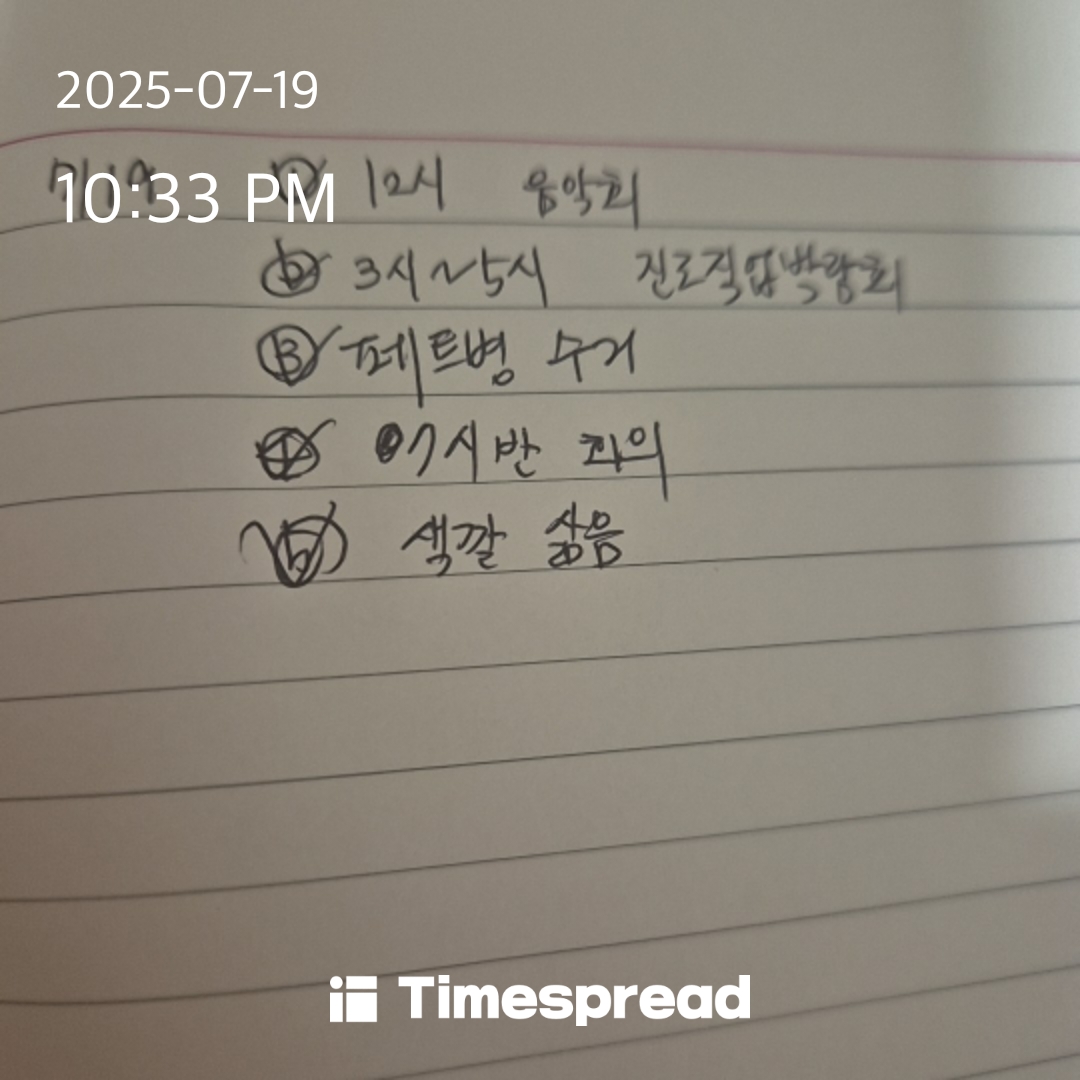 2025-07-19
7/19 ① 12시 음악회
10:33 PM
② 3시~5시 진로직업박람회
③ 페트병 수거
④ 07시반 과외
⑤ 색깔 싫음
Timespread